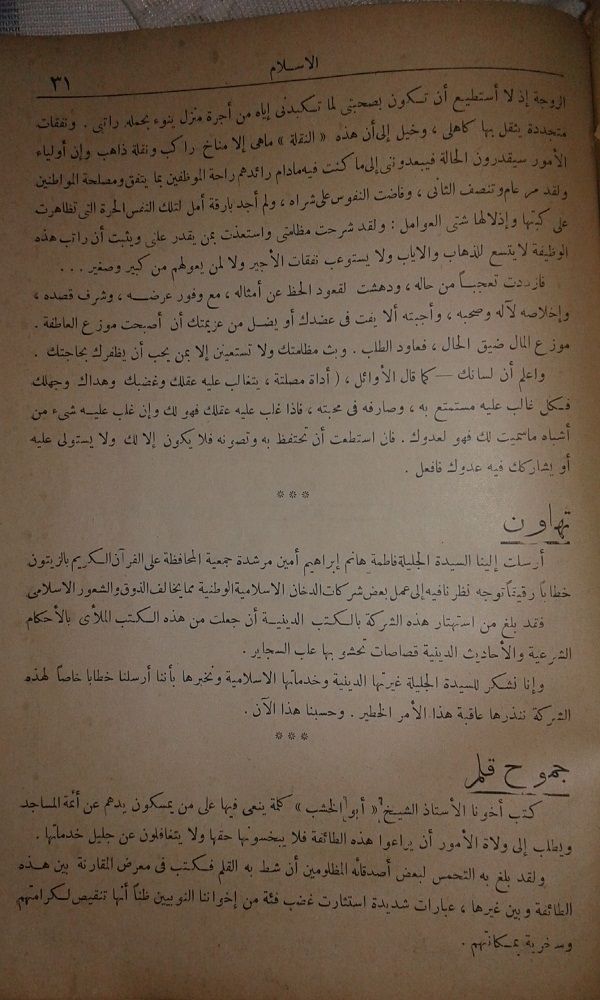 الاسلام
٣١
الزوجة إذ لا أستطيع أن تكون بصحبتى لما تكبدنى إياه من أجرة منزل ينوء بحمله راتبى . ونفقات
متجددة يثقل بها كاهلى ، وخيل إلى أن هذه « النقلة » ماهى إلا مناخ راكب ونقلة ذاهب وإن أولياء
الأمور سيقدرون الحالة فيبعدوننى إلى ما كنت فيه مادام رائدهم راحة الموظفين بما يتفق ومصلحة المواطنين
ولقد مر عام وتنصف الثانى ، وفاضت النفوس على شراه ، ولم أجد بارقة أمل لتلك النفس الحرة التى تظاهرت
على كيتها وإذلالها شتى العوامل : ولقد شرحت مظلمتى واستعذت بمن يقدر على ويثبت أن راتب هذه
الوظيفة لا يتسع للذهاب والاياب ولا يستوعب نفقات الأجير ولا لمن يعولهم من كبير وصغير . . .
فازددت تعجباً من حاله ، ودهشت لقعود الحظ عن أمثاله ، مع وفور عرضه ، وشرف قصده ،
وإخلاصه لآله وصحبه ، وأجبته ألا يفت فى عضدك أو يضل من عزيمتك أن أصبحت موزع العاطفة .
موزع المال ضيق الحال ، فعاود الطلب . وبث مظلمتك ولا تستعين إلا بمن يحب أن يظفرك بحاجتك .
واعلم أن لسانك — كما قال الأوائل ، ( أداة مصلتة ، يتغالب عليه عقلك وغضبك وهداك وجهلك
فكل غالب عليه مستمتع به ، وصارفه فى محبته ، فاذا غلب عليه عقلك فهو لك وإن غلب عليه شىء من
أشباه ماسميت لك فهو لعدوك . فان استطعت أن تحتفظ به وتصونه فلا يكون إلا لك ولا يستولى عليه
أو يشاركك فيه عدوك فافعل .
* * *
تهاون
أرسلت إلينا السيدة الجليلة فاطمة هانم إبراهيم أمين مرشدة جمعية المحافظة على القرآن الكريم بالزيتون
خطاباً رقيقاً توجه نظرنا فيه إلى عمل بعض شركات الدخان الاسلامية الوطنية مما يخالف الذوق والشعور الاسلامى
فقد بلغ من استهتار هذه الشركة بالكتب الدينية أن جعلت من هذه الكتب الملأى بالأحكام
الشرعية والأحاديث الدينية قصاصات تحشو بها علب السجاير .
وإنا نشكر للسيدة الجليلة غيرتها الدينية وخدماتها الاسلامية ونخبرها بأننا أرسلنا خطابا خاصاً لهذه
الشركة ننذرها عاقبة هذا الأمر الخطير . وحسبنا هذا الآن .
* * *
جموح قلم
كتب أخونا الأستاذ الشيخ « أبو الخشب » كلمة ينعى فيها على من يمسكون يدهم عن أئمة المساجد
ويطلب إلى ولاة الأمور أن يراعوا هذه الطائفة فلا يبخسونها حقها ولا يتغافلون عن جليل خدماتها .
ولقد بلغ به التحمس لبعض أصدقائه المظلومين أن شط به القلم فكتب فى معرض المقارنة بين هذه
الطائفة وبين غيرها ، عبارات شديدة استثارت غضب فئة من إخواننا النوبيين ظناً أنها تنقيص لكرامتهم
وسخرية بمكانتهم .